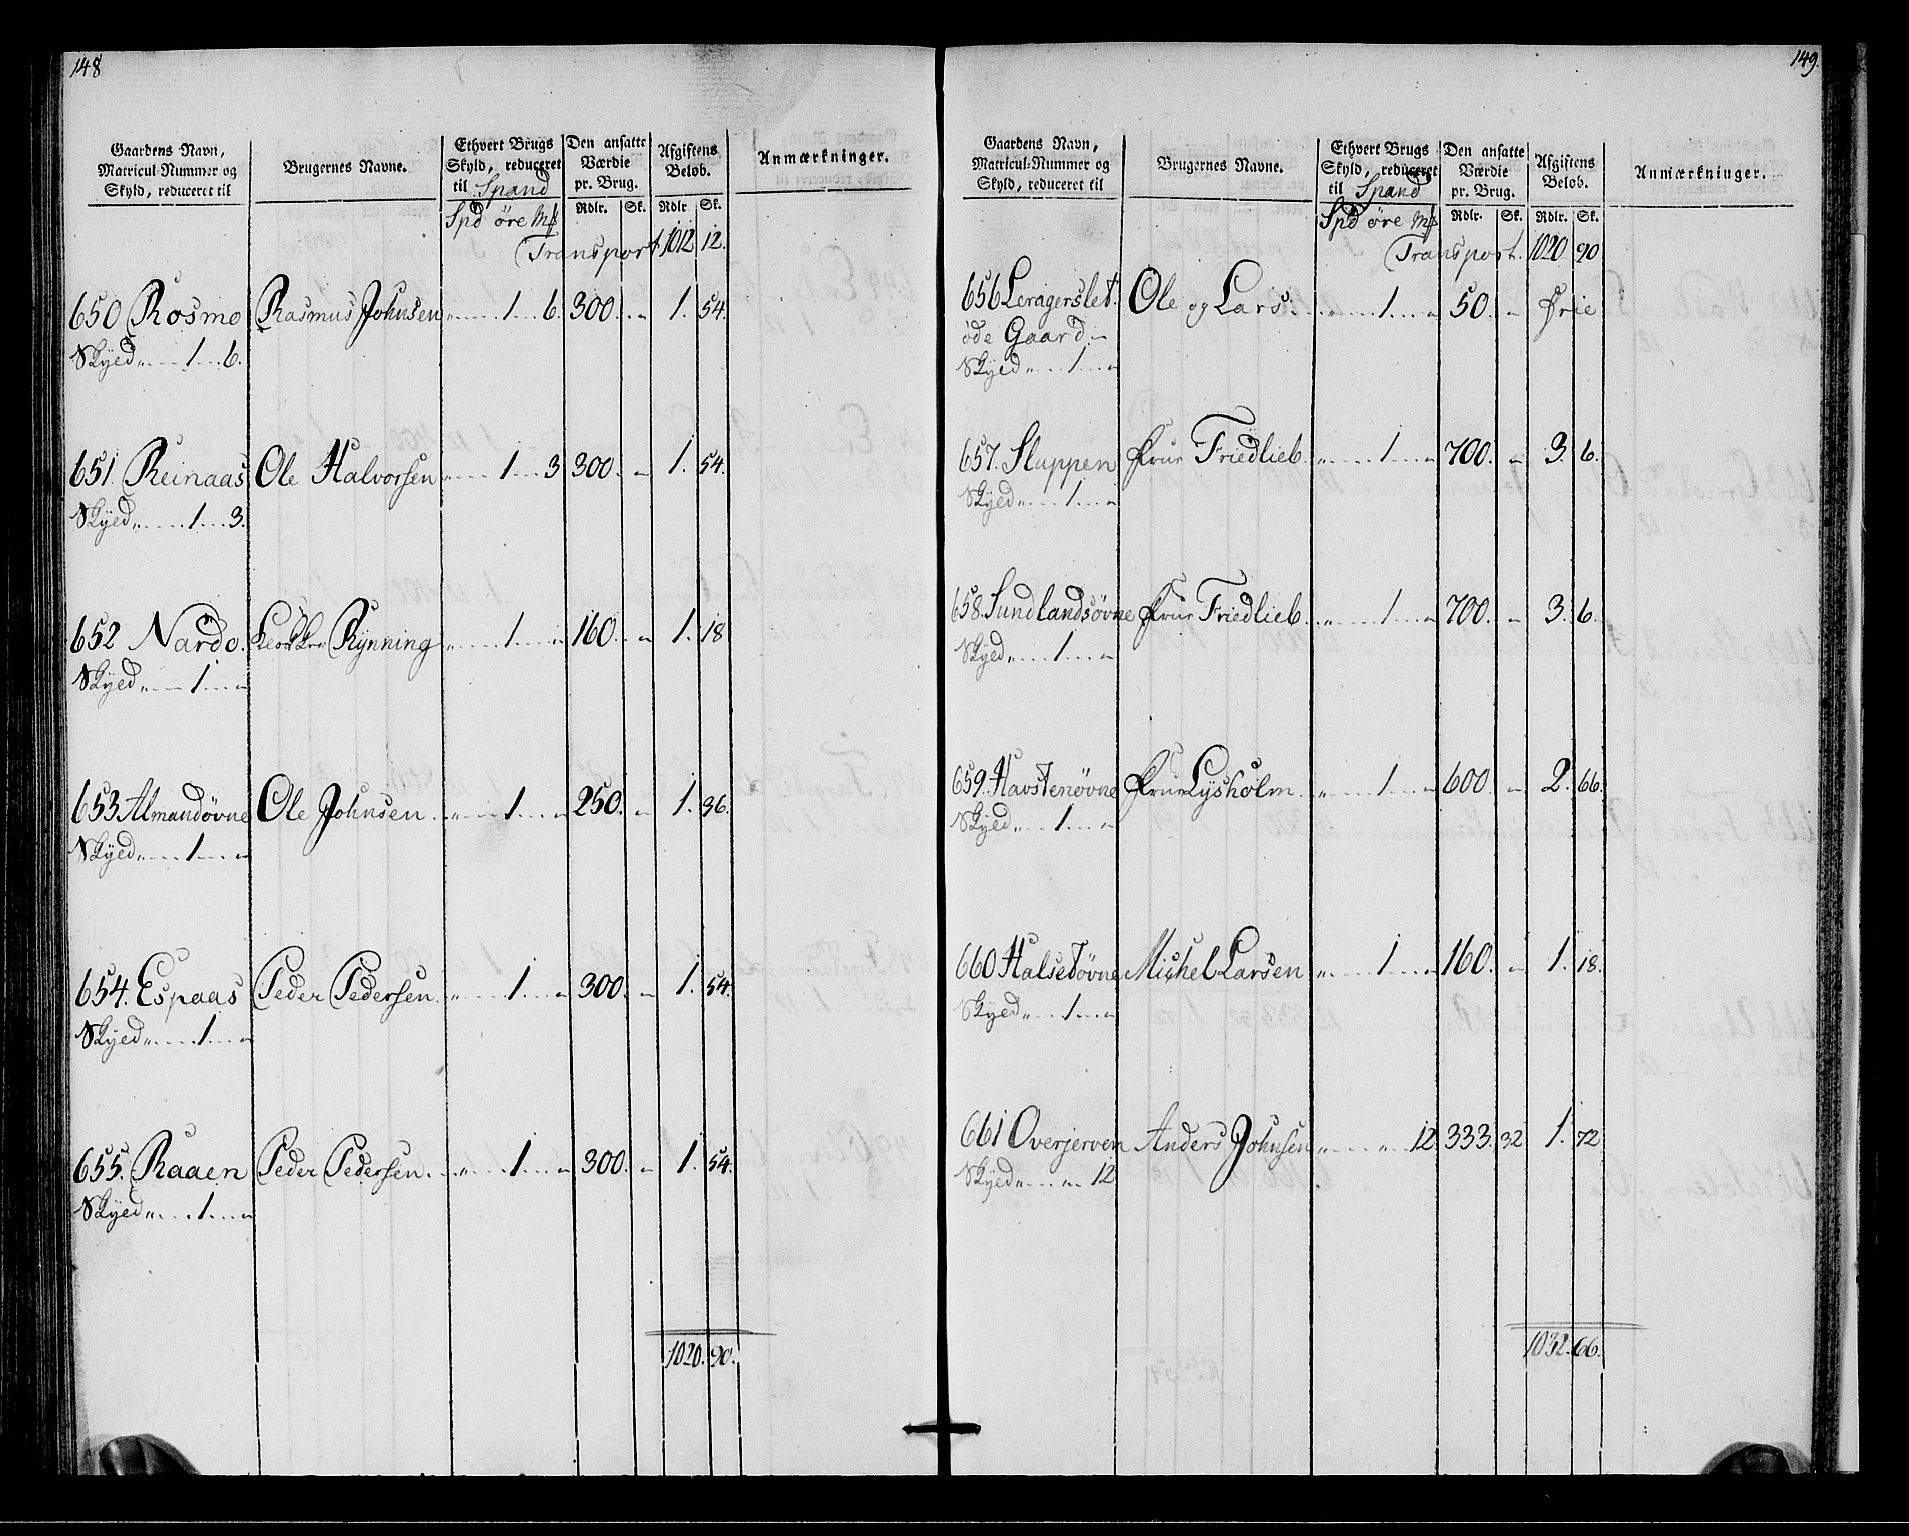 148
Gaardens Navn, Matricul-Nummer og Skyld, reduceret til | Brugernes Navne. | Ethvert Brugs Skyld, reduceret til Spand | Den ansatte Værdie pr. Brug. | Afgiftens Belob. | Anmærkninger.
Spd øre Mk | Rdlr. | Sk. | Rdlr | Sk.
Transport 1012 12.
650 Rosmo Rasmus Johnsen „ 1 6. 300. „ 1. 54.
Skyed „ 1 6.
651. Reinaas Ole Halvorsen „ 1 3 300. „ 1. 54.
Skyed „ 1 3.
652 Nardo. Rynning „ 1 „ 160. „ 1. 18
Skyed „ 1 „
653 Almandövne Ole Johnsen „ 1 „ 250. „ 1. 36.
Skyed „ 1 „
654. Espaas Peder Pedersen. „ 1 „ 300. „ 1. 54.
Skyed „ 1 „
655. Raaen Peder Pedersen. „ 1 „ 300. „ 1. 54.
Skyed „ 1 „
1020. 90.
149.
Gaardens Navn, Matricul-Nummer og Skyld, reduceret til | Brugernes Navne. | Ethvert Brugs Skyld, reduceret til Spand | Den ansatte Værdie pr. Brug. | Afgiftens Belob. | Anmærkninger.
Spd øre Mk | Rdlr. | Sk. | Rdlr. | Sk.
Transport. 1020 90
656 Leragerslet. Ole og Lars. „ 1 „ 50. „ Frie
öde Gaard
Skyed „ 1 „
657. Sluppen Frue Friedlieb. „ 1 „ 700. „ 3. 6.
Skyed „ 1 „
658. Sundlandsövne Frue Friedlieb. „ 1 „ 700. „ 3. 6.
Skyed „ 1 „
659. Havstenövne Frue Lysholm. „ 1 „ 600. „ 2. 66.
Skyed „ 1 „
660 Halsetövne Michel Larsen „ 1 „ 160. „ 1. 18.
Skyed „ 1 „
661 Overjerven Anders Johnsen „ „ 12. 333. 32 1. 72
Skyed „ „ 12
1032. 66.